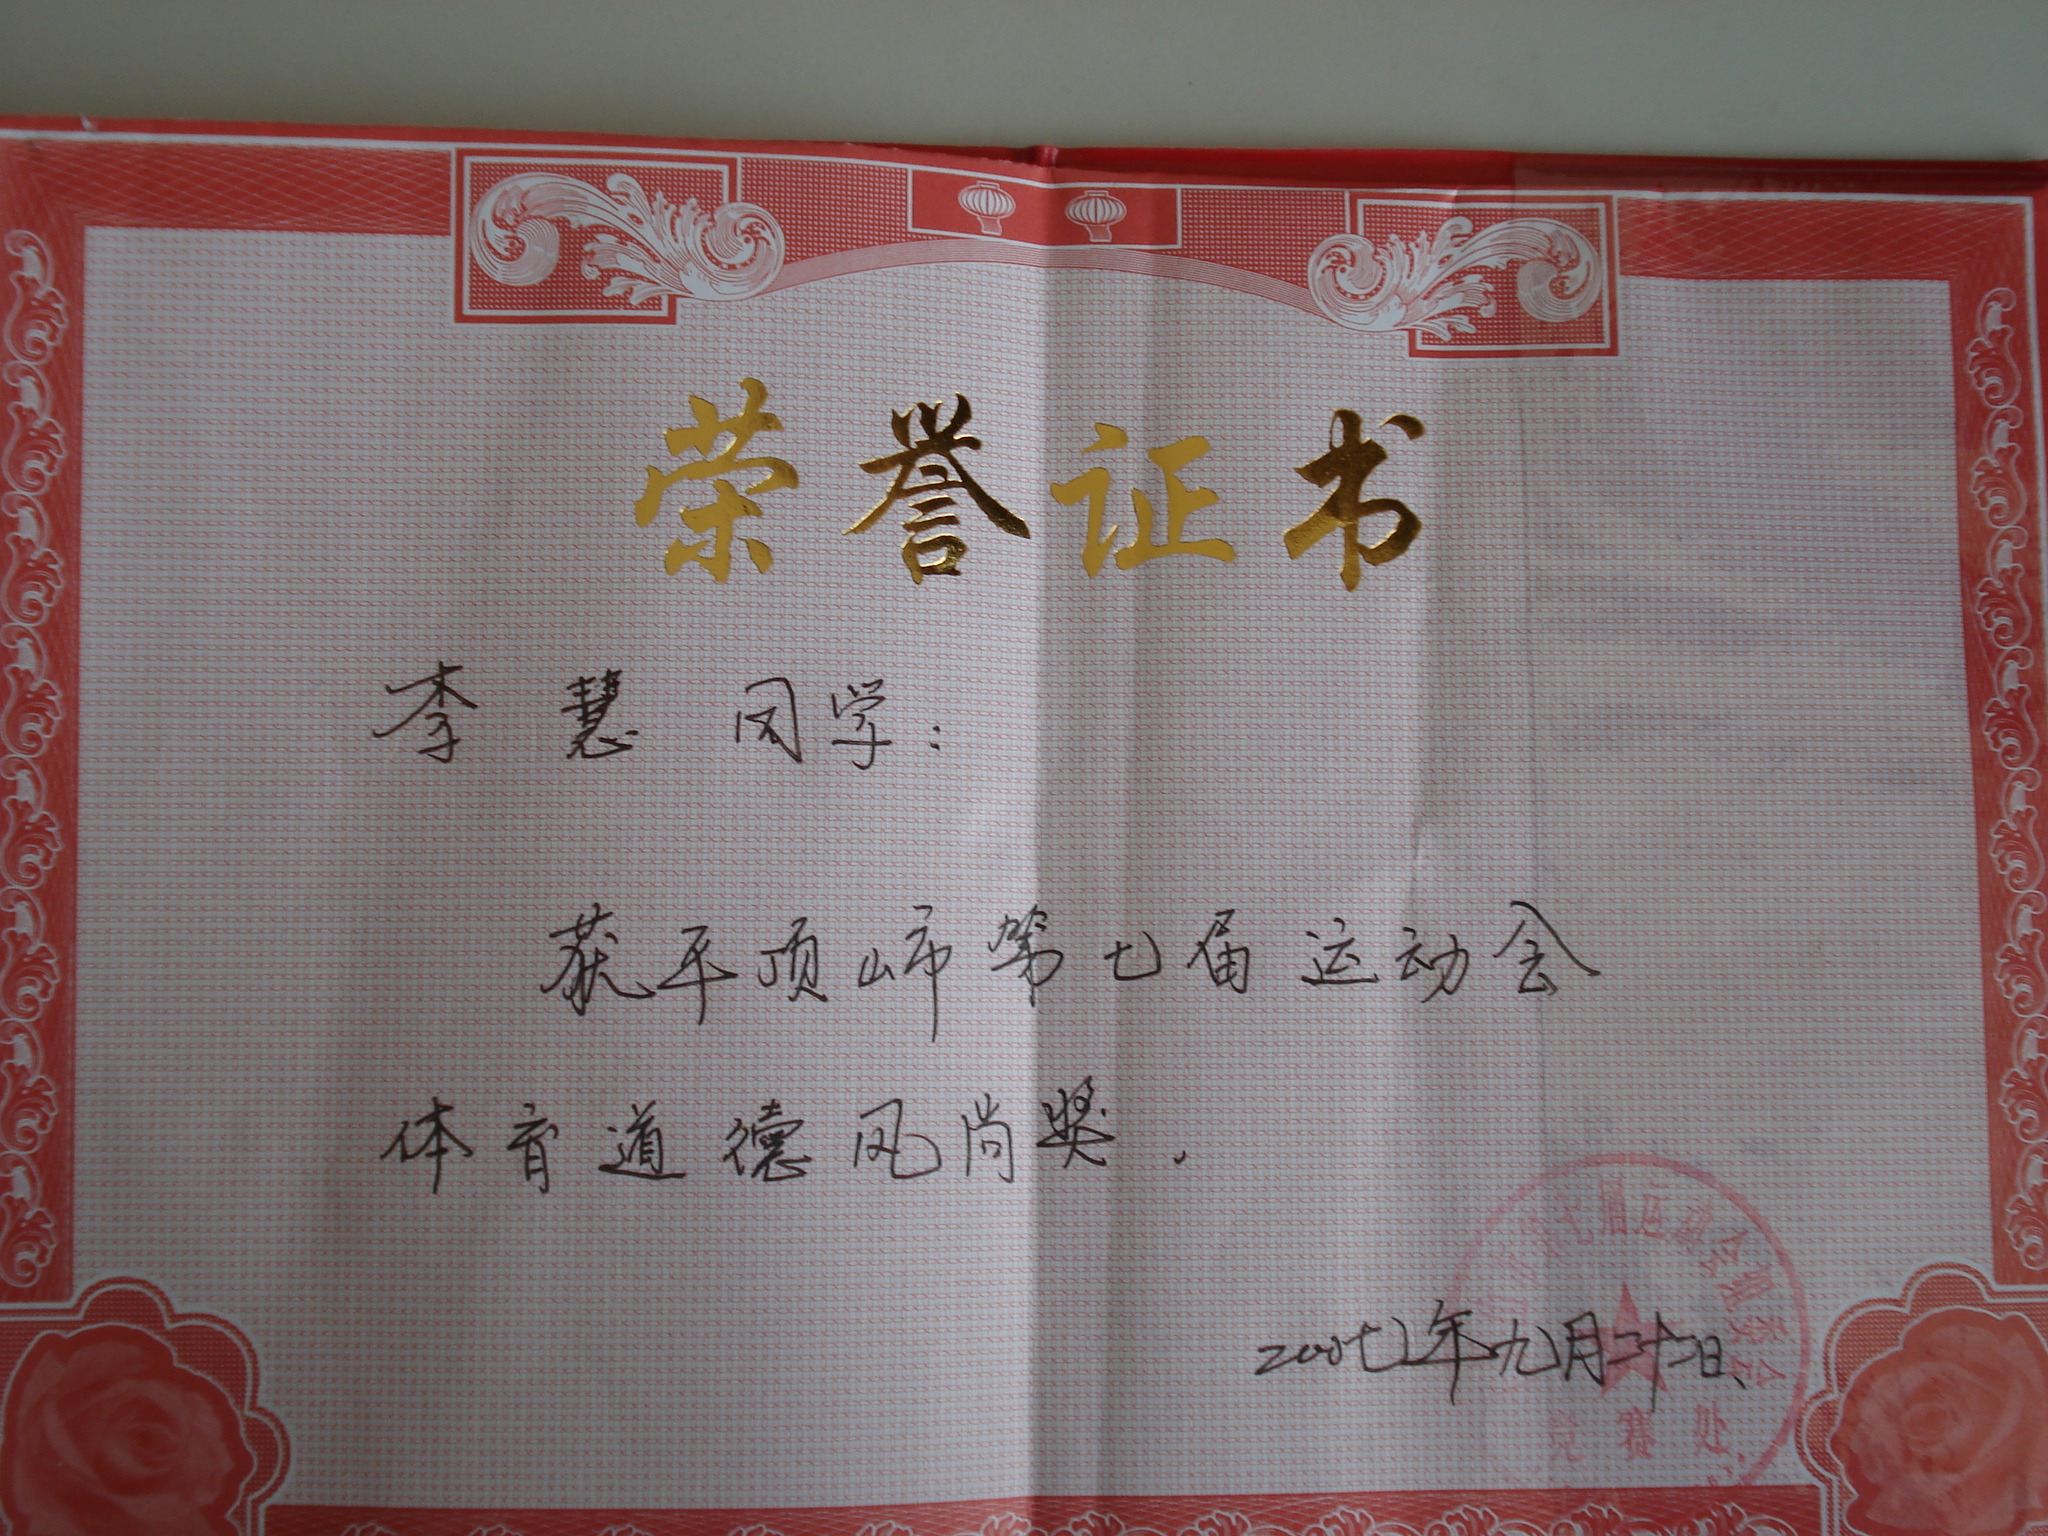 荣誉证书
李慧同学：
获平顶山市第七届运动会
体育道德风尚奖.
第七届运动会组委会
竞赛处
2007年九月二十二日